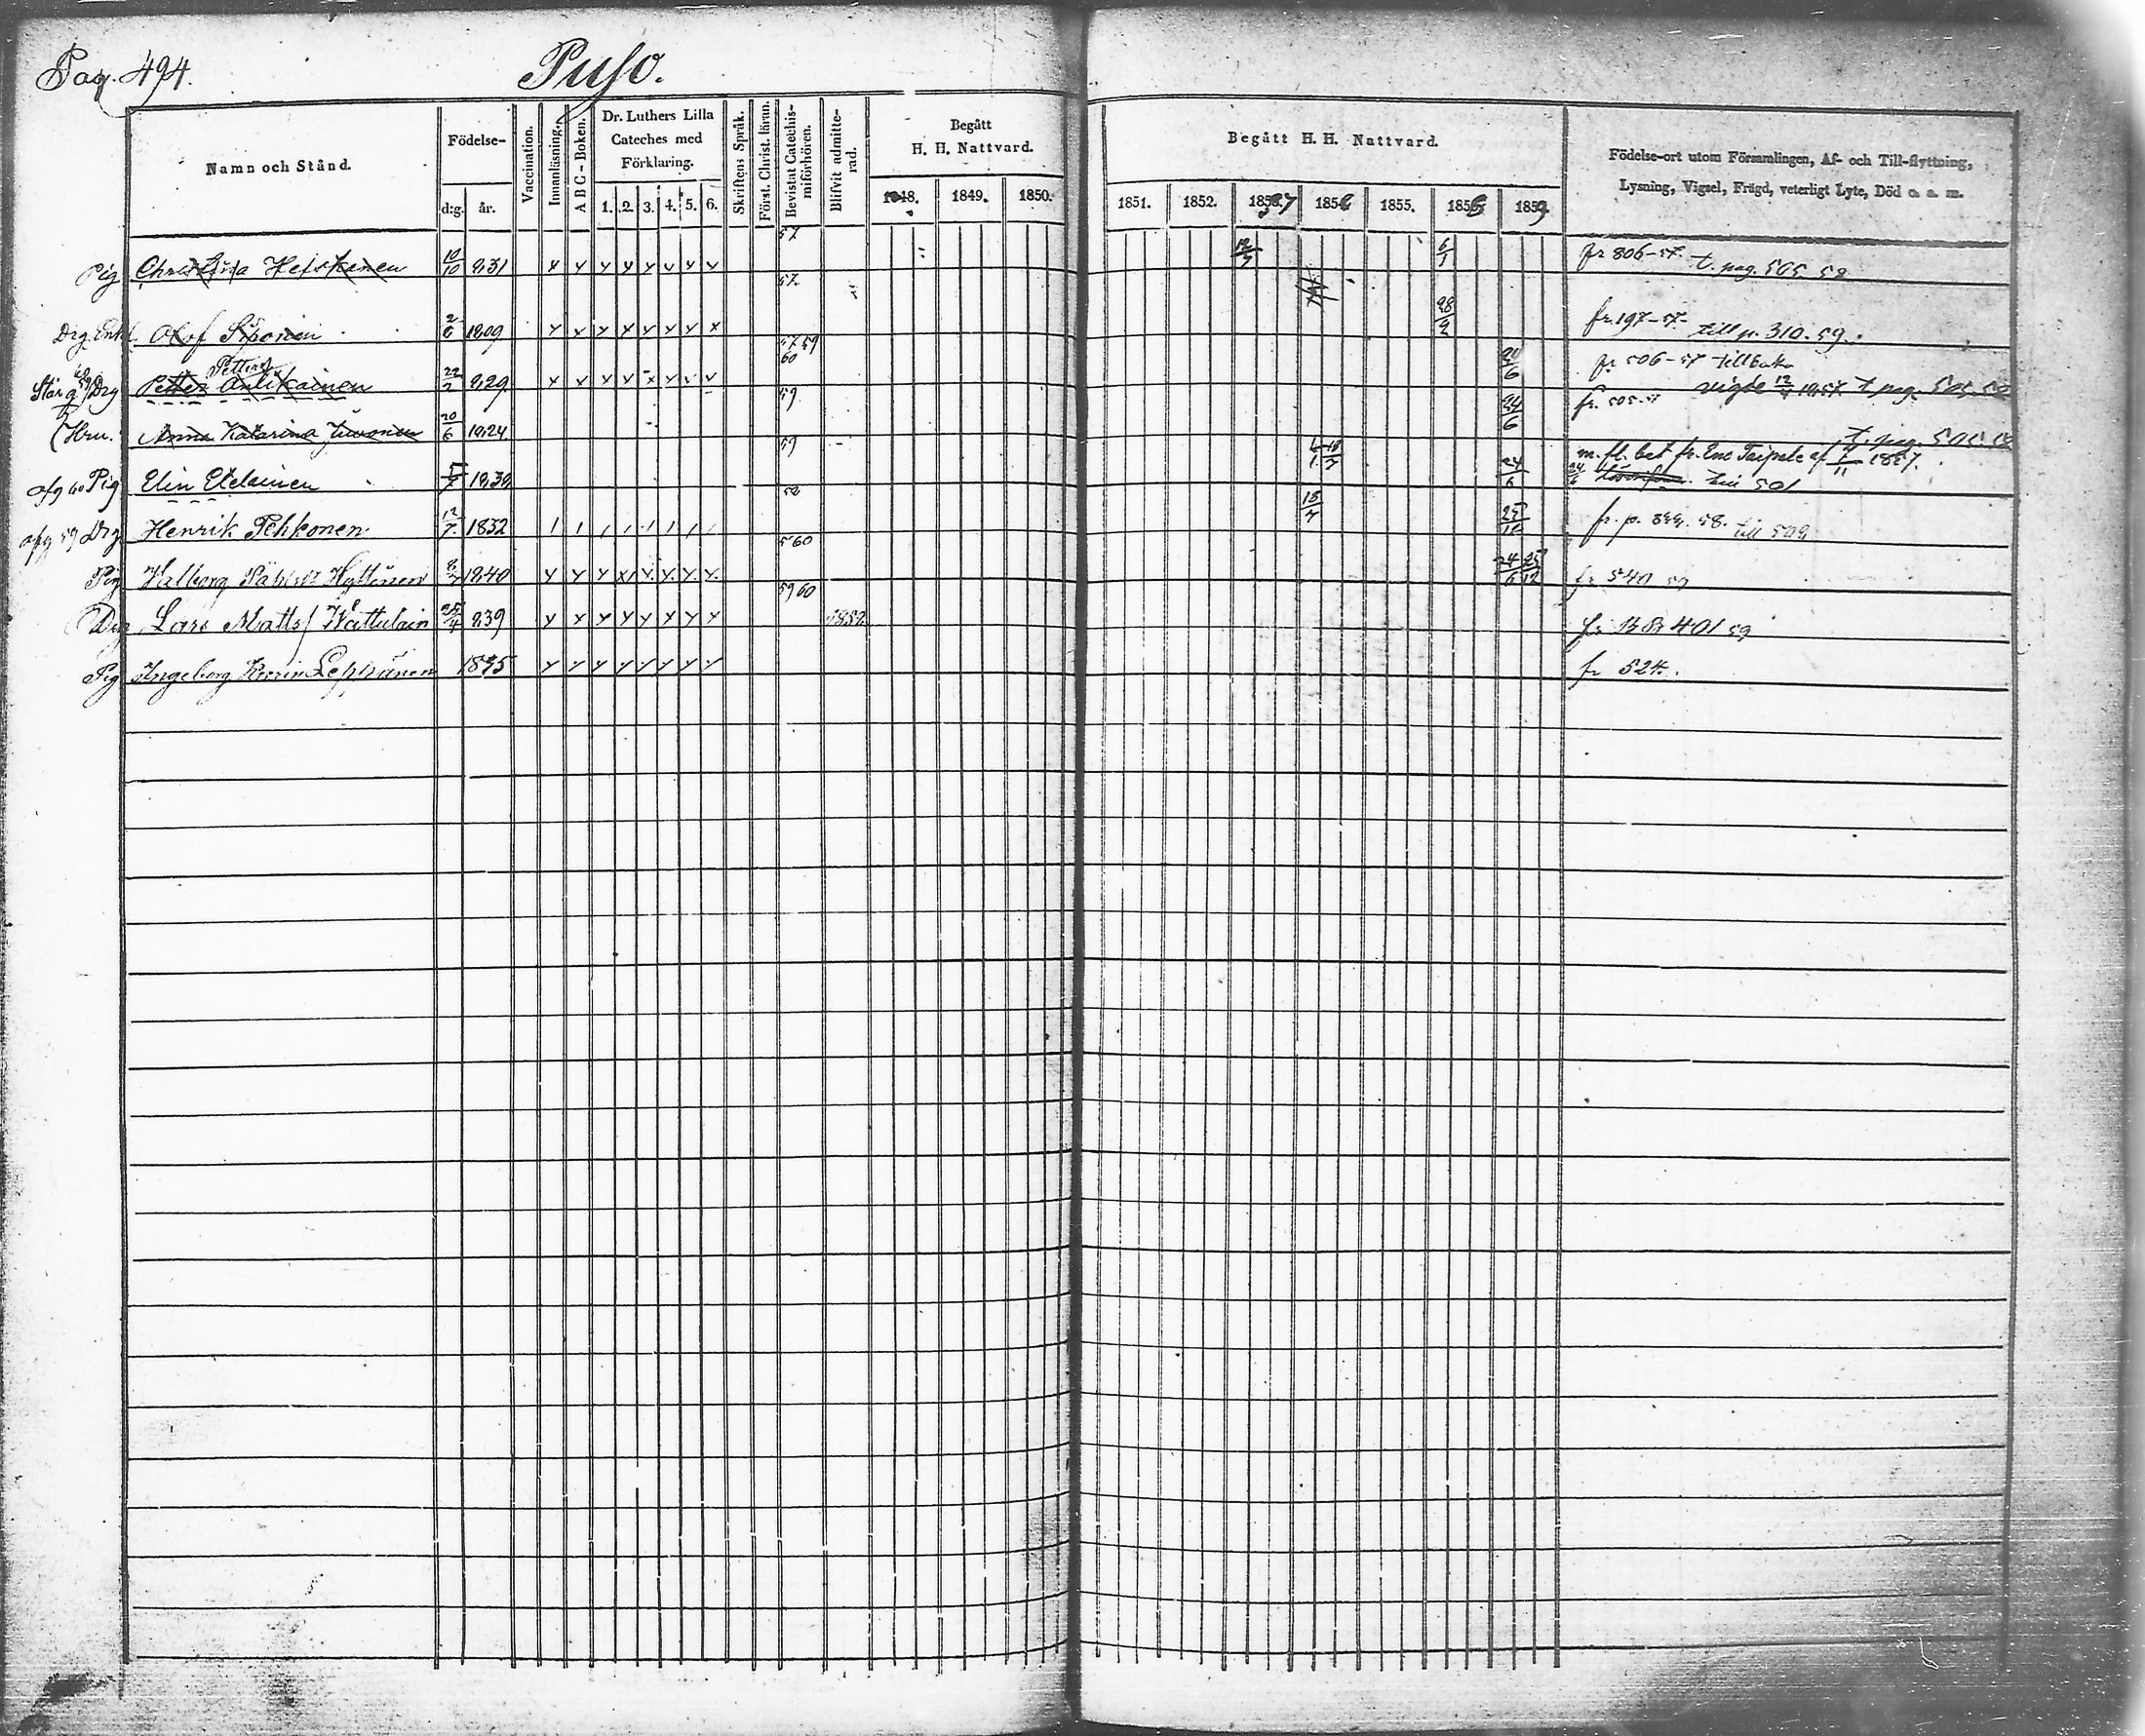 Pag. 494.
Puso.
Namn och Stånd.
Födelse-
d:g.
år.
Vaccination.
Innanläsning.
A B C - Boken.
Dr. Luthers Lilla
Cateches med
Förklaring.
1. 2. 3. 4. 5. 6.
Skriftens Språk.
Först. Christ. läran.
Bevistat Catechis-
miförhören.
Blifvit admitte-
rad.
Begått
H. H. Nattvard.
1848. 1849. 1850.
Begått H. H. Nattvard.
1851. 1852. 1857 1858 1855. 1856 1859
Födelse-ort utom Församlingen, Af- och Till-flyttning,
Lysning, Vigsel, Frägd, veterligt Lyte, Död o. s. m.
Pig Christina Heiskanen 10/10 831 y y y y y y y y 57 12/7 6/1 fr 806-57. t. pag. 505 58
Drg. Enkl. Olof Siponen 2/6 1809 y y y y y y y x 57 28/2 fr. 197-57- till p. 310. 59.
Drg Petter Pettersz Antikainen 22/2 829 57 59 60 24/6 fr 506-57 tillbaka
vigde 12/4 1857. t. pag. 505. 58
Hru. Anna Katarina Juvonen 20/6 1824 59 24/6 fr. 505-57
t. pag. 505. 58
afg 60 Pig Elin Etelainen 1839 59 18/7 24/6 m. fl. bet fr. Taipale af 1/11 1857.
24/6 till 501
afg 59 Drg Henrik Pehkonen 12/7 1832 58 18/7 25/12 fr. p. 58. till 509
Pig Valborg Pählsdr Hyttinen 8/7 1840 60 24/6 25/12 fr 540 59
Drg Lars Matts/ Wattulain 25/4 839 y x y y y y y y 59 60 1858 fr 401 59
Pig Ingeborg Leppänen 1835 y y y y y y y y fr 524.